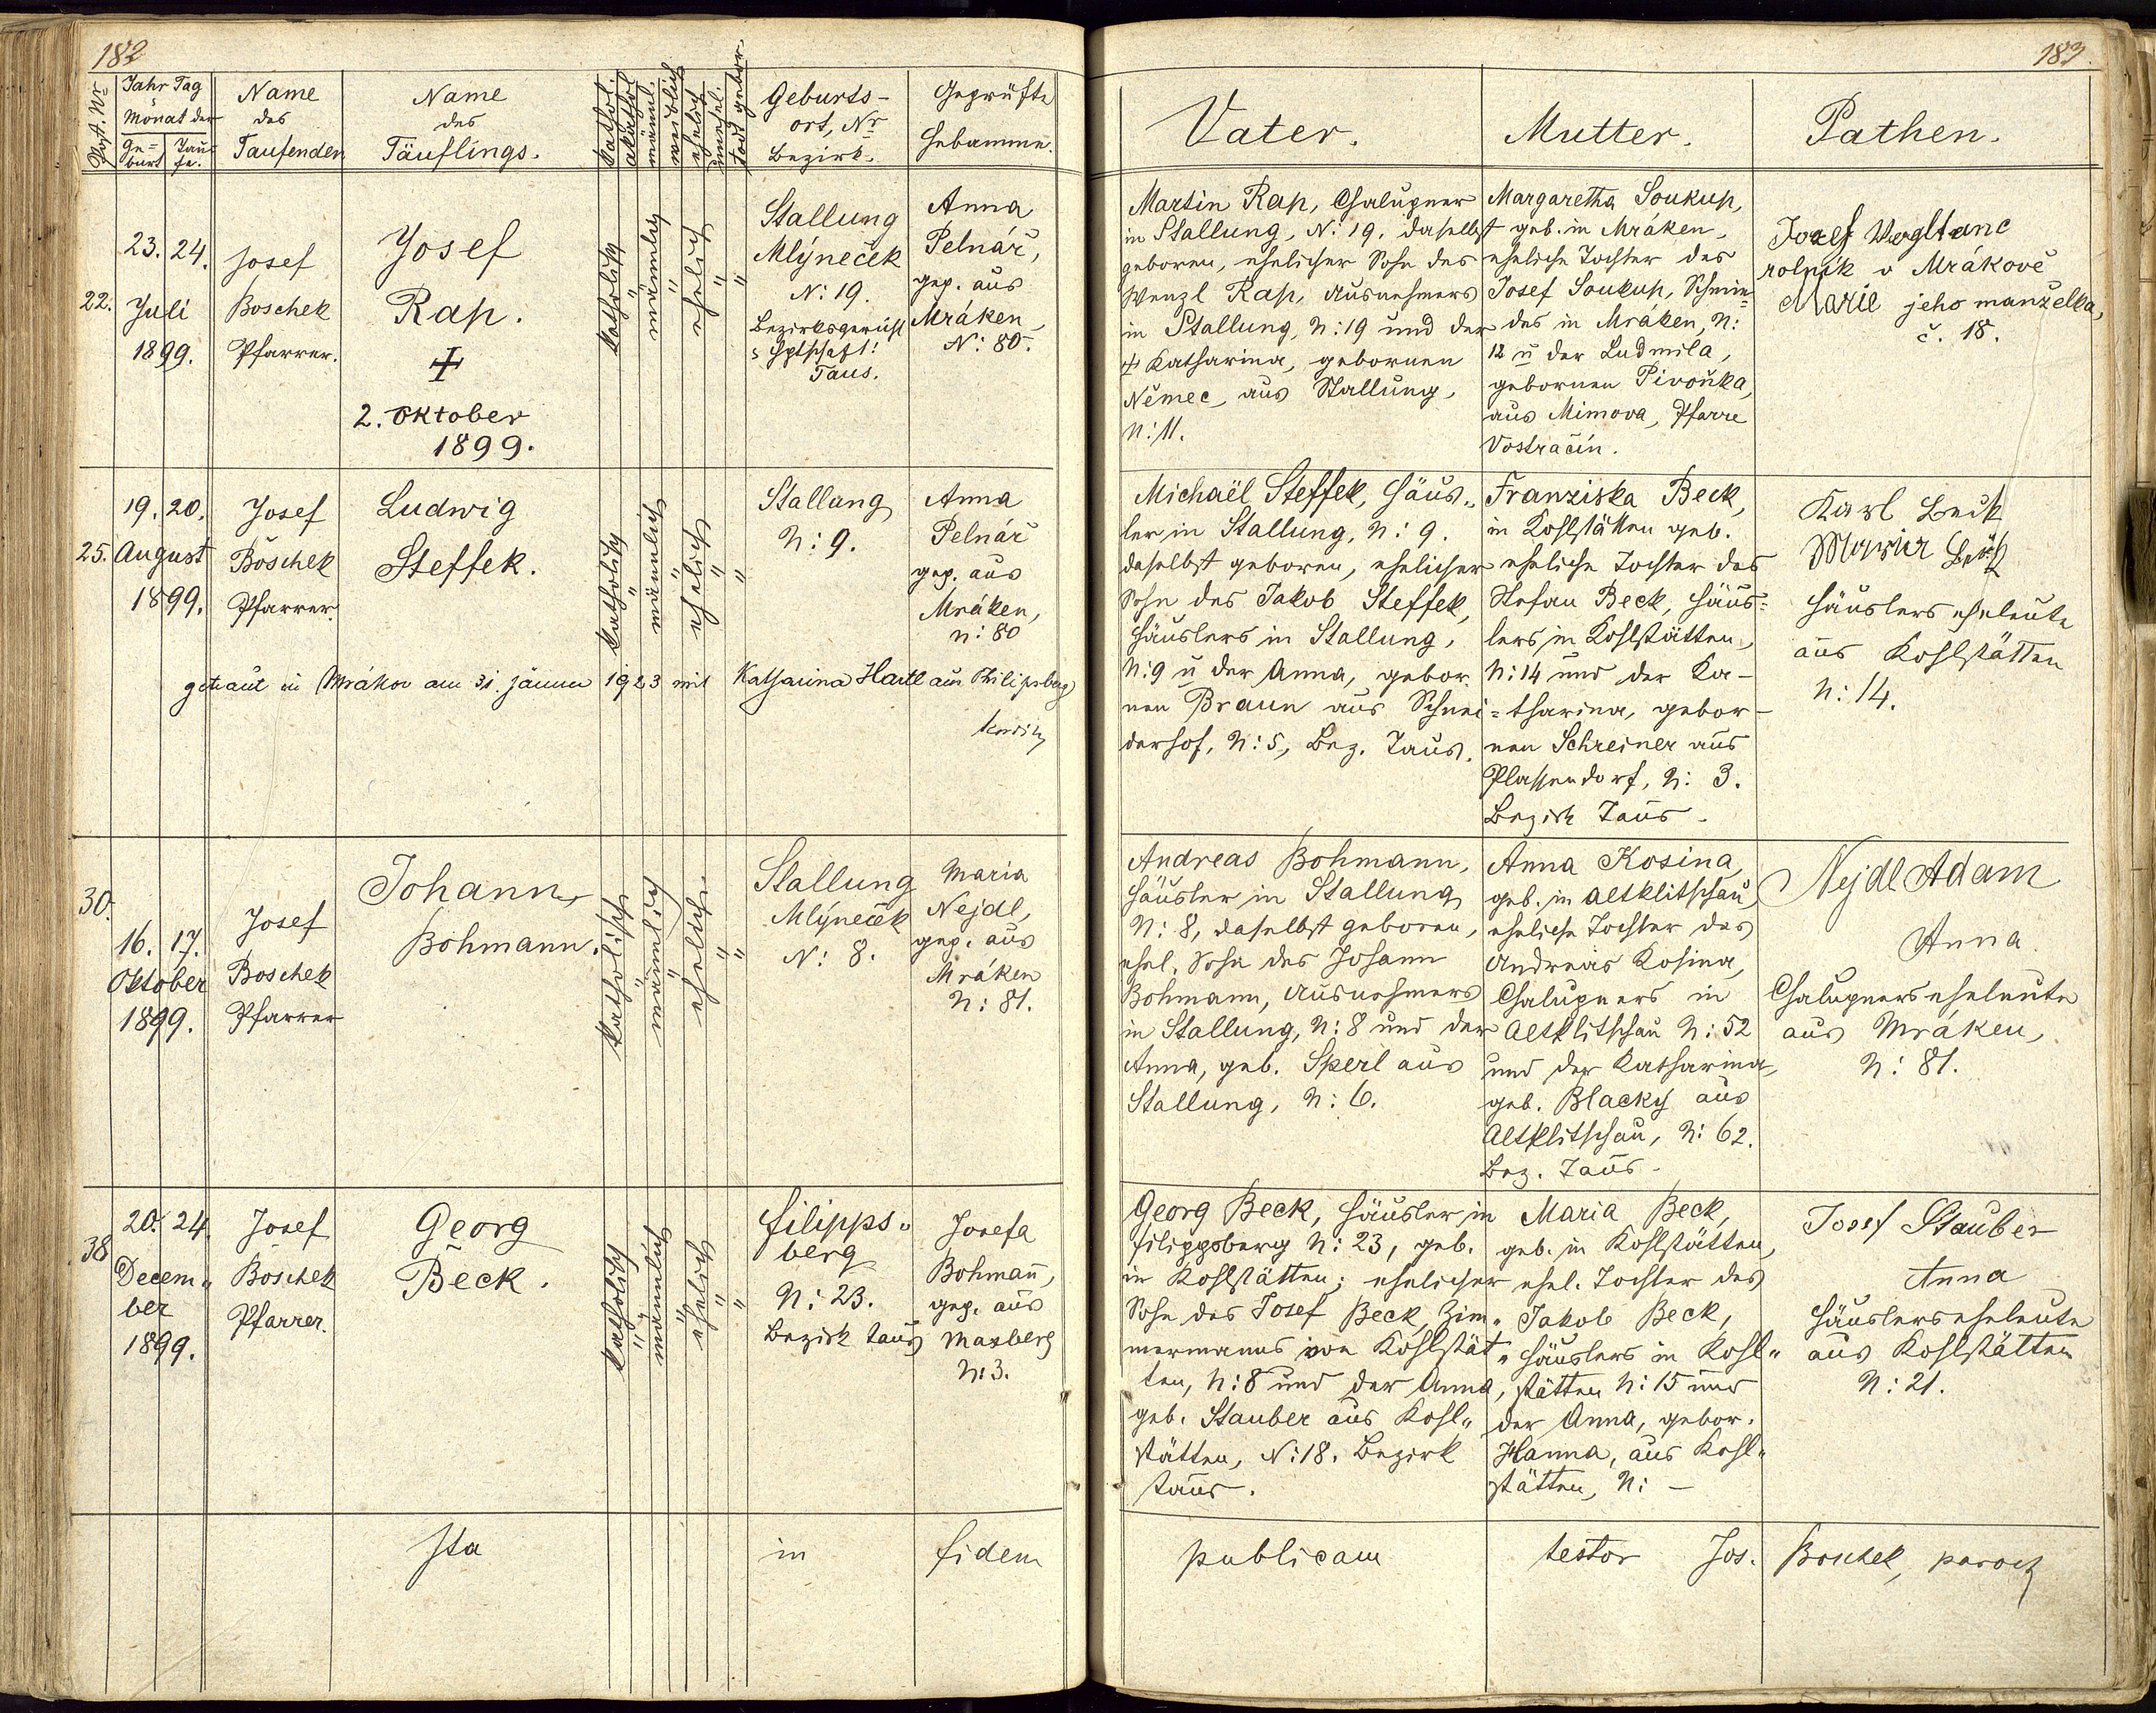 182
Post. Nr
Jahr Tag
Monat der
Ge=
burt
Tau=
fe.
Name
des
Taufenden
Name
des
Täuflings.
kathol.
akathol
männl.
weiblich
ehelich
unehel.
todt gebor
Geburts-
ort, Nr
Bezirk.
Geprüfte
Hebamme.
22.
23. 24.
Juli
1899.
Josef
Boschek
Pfarrer.
Josef
Rap.
✝
2. Oktober
1899.
katholisch
"
männlich
"
ehelich
"
"
Stallung
Mlýneček
N: 19.
Bezirksgericht
Hptschaft:
Taus.
Anna
Pelnář,
gep. aus
Mráken,
N: 80.
25.
19. 20.
August
1899.
Josef
Boschek
Pfarrer.
Ludwig
Steffek.
katholisch
"
männlich
"
ehelich
"
"
Stallung
N: 9.
Anna
Pelnář
gep. aus
Mráken,
N: 80
getraut in Mrákov am 31. Jänner 1923 mit Katharina Hartl aus Philipsberg
30.
16. 17.
Oktober
1899.
Josef
Boschek
Pfarrer
Johann
Bohmann.
katholisch
"
männlich
"
ehelich
"
"
Stallung
Mlýneček
N: 8.
Maria
Nejdl,
gep. aus
Mráken
N: 81.
38
20. 24.
Decem„
ber
1899.
Josef
Boschek
Pfarrer.
Georg
Beck.
katholisch
"
männlich
"
ehelich
"
"
Filipps„
berg
N: 23.
Bezirk Taus
Josefa
Bohmañ,
gep. aus
Maxberg
N: 3.
Ita in fidem
183.
Vater. Mutter. Pathen.
Martin Rap, Chalupner
in Stallung, N: 19. daselbst
geboren, ehelicher Sohn des
Wenzl Rap, Ausnehmers
in Stallung, N: 19 und der
✝ Katharina, gebornen
Němec, aus Stallung,
N: 11.
Margaretha Soukup,
geb. in Mráken,
eheliche Tochter des
Josef Soukup, Schmie=
des in Mráken, N:
12 u der Ludmila,
gebornen Pivoňka,
aus Mimova, Pfarre
Vostračín.
Josef Vogltanc
rolník v Mrákově
Marie jeho manželka,
č. 18.
Michaël Steffek, Häus„
ler in Stallung, N: 9.
daselbst geboren, ehelicher
Sohn des Jakob Steffek,
Häuslers in Stallung,
N: 9 u der Anna, gebor.
nen Braun aus Schnei=
derhof, N: 5, Bez. Taus.
Franziska Beck,
in Kohlstätten geb.
eheliche Tochter des
Stefan Beck, Häus=
lers in Kohlstätten,
N: 14 und der Ka-
tharina, gebor-
nen Schreiner aus
Plassendorf, N: 3.
Bezirk Taus.
Karl Beck
Maria Beck
Häuslerseheleute
aus Kohlstätten
N: 14.
Andreas Bohmann,
Häusler in Stallung
N: 8, daselbst geboren,
ehel. Sohn des Johann
Bohmann, Ausnehmers
in Stallung, N: 8 und der
Anna, geb. Sperl aus
Stallung, N: 6.
Anna Kosina,
geb. in Altklitschau,
eheliche Tochter des
Andreas Kosina,
Chalupners in
Altklitschau N: 52
und der Katharina,
geb. Blacky aus
Altklitschau, N: 62.
Bez. Taus.
Nejdl Adam
Anna
Chalupnerseheleute
aus Mráken,
N: 81.
Georg Beck, Häusler in
Filippsberg N: 23, geb.
in Kohlstätten; ehelicher
Sohn des Josef Beck, Zim„
mermanns von Kohlstät„
ten, N: 8 und der Anna,
geb. Stauber aus Kohl„
stätten, N: 18. Bezirk
Taus.
Maria Beck,
geb. in Kohlstätten,
ehel. Tochter des
Jakob Beck,
Häuslers in Kohl„
stätten N: 15 und
der Anna, gebor.
Hanna, aus Kohl„
stätten, N: –
Josef Stauber
Anna
Häuslerseheleute
aus Kohlstätten
N: 21.
publicam testor Jos. Boschek, paroch